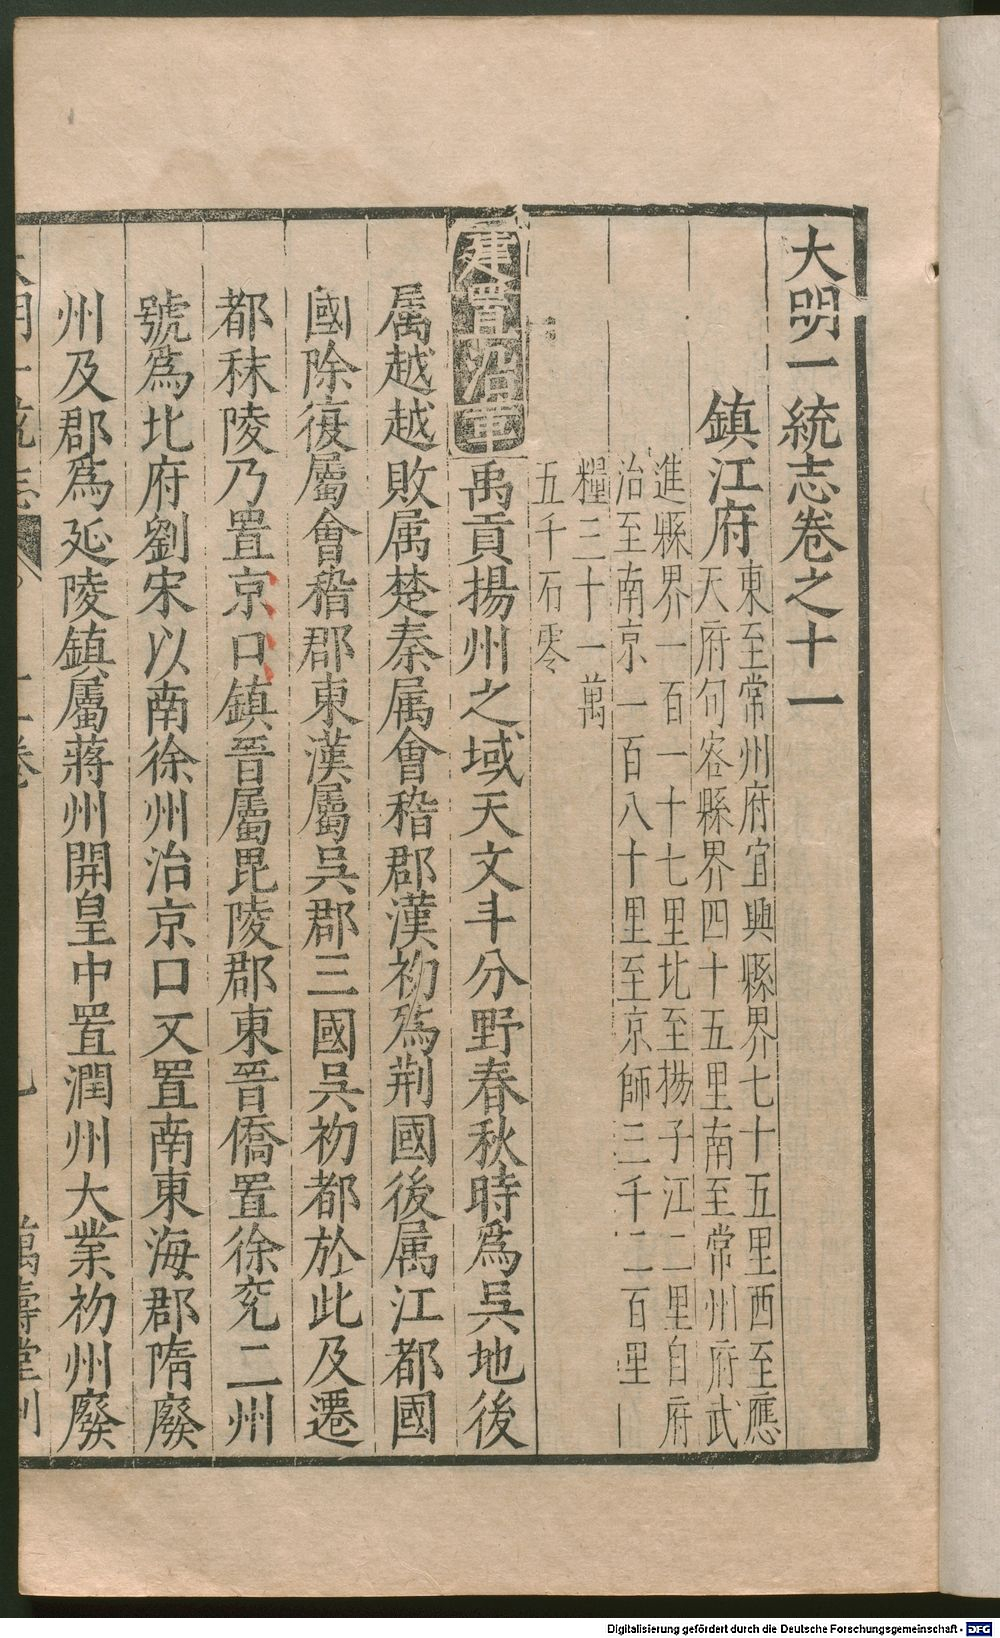 大明一統志卷之十一
鎮江府
東至常州府宜興縣界七十五里西至應
天府句容縣界四十五里南至常州府武
進縣界一百一十七里北至揚子江二里自府
治至南京一百八十里至京師三千二百里
糧三十一萬
五千石零
建置沿革
禹貢揚州之域天文斗分野春秋時爲吳地後
属越越敗属楚秦属會稽郡漢初爲荆國後属江都國
國除復屬會稽郡東漢屬吳郡三國吳初都於此及遷
都秣陵乃置京口鎮晉屬毘陵郡東晉僑置徐兖二州
號爲北府劉宋以南徐州治京口又置南東海郡隋廢
州及郡爲延陵鎮屬蔣州開皇中置潤州大業初州廢
大明一統志 十一卷
萬壽堂刊
Digitalisierung gefördert durch die Deutsche Forschungsgemeinschaft - DFG